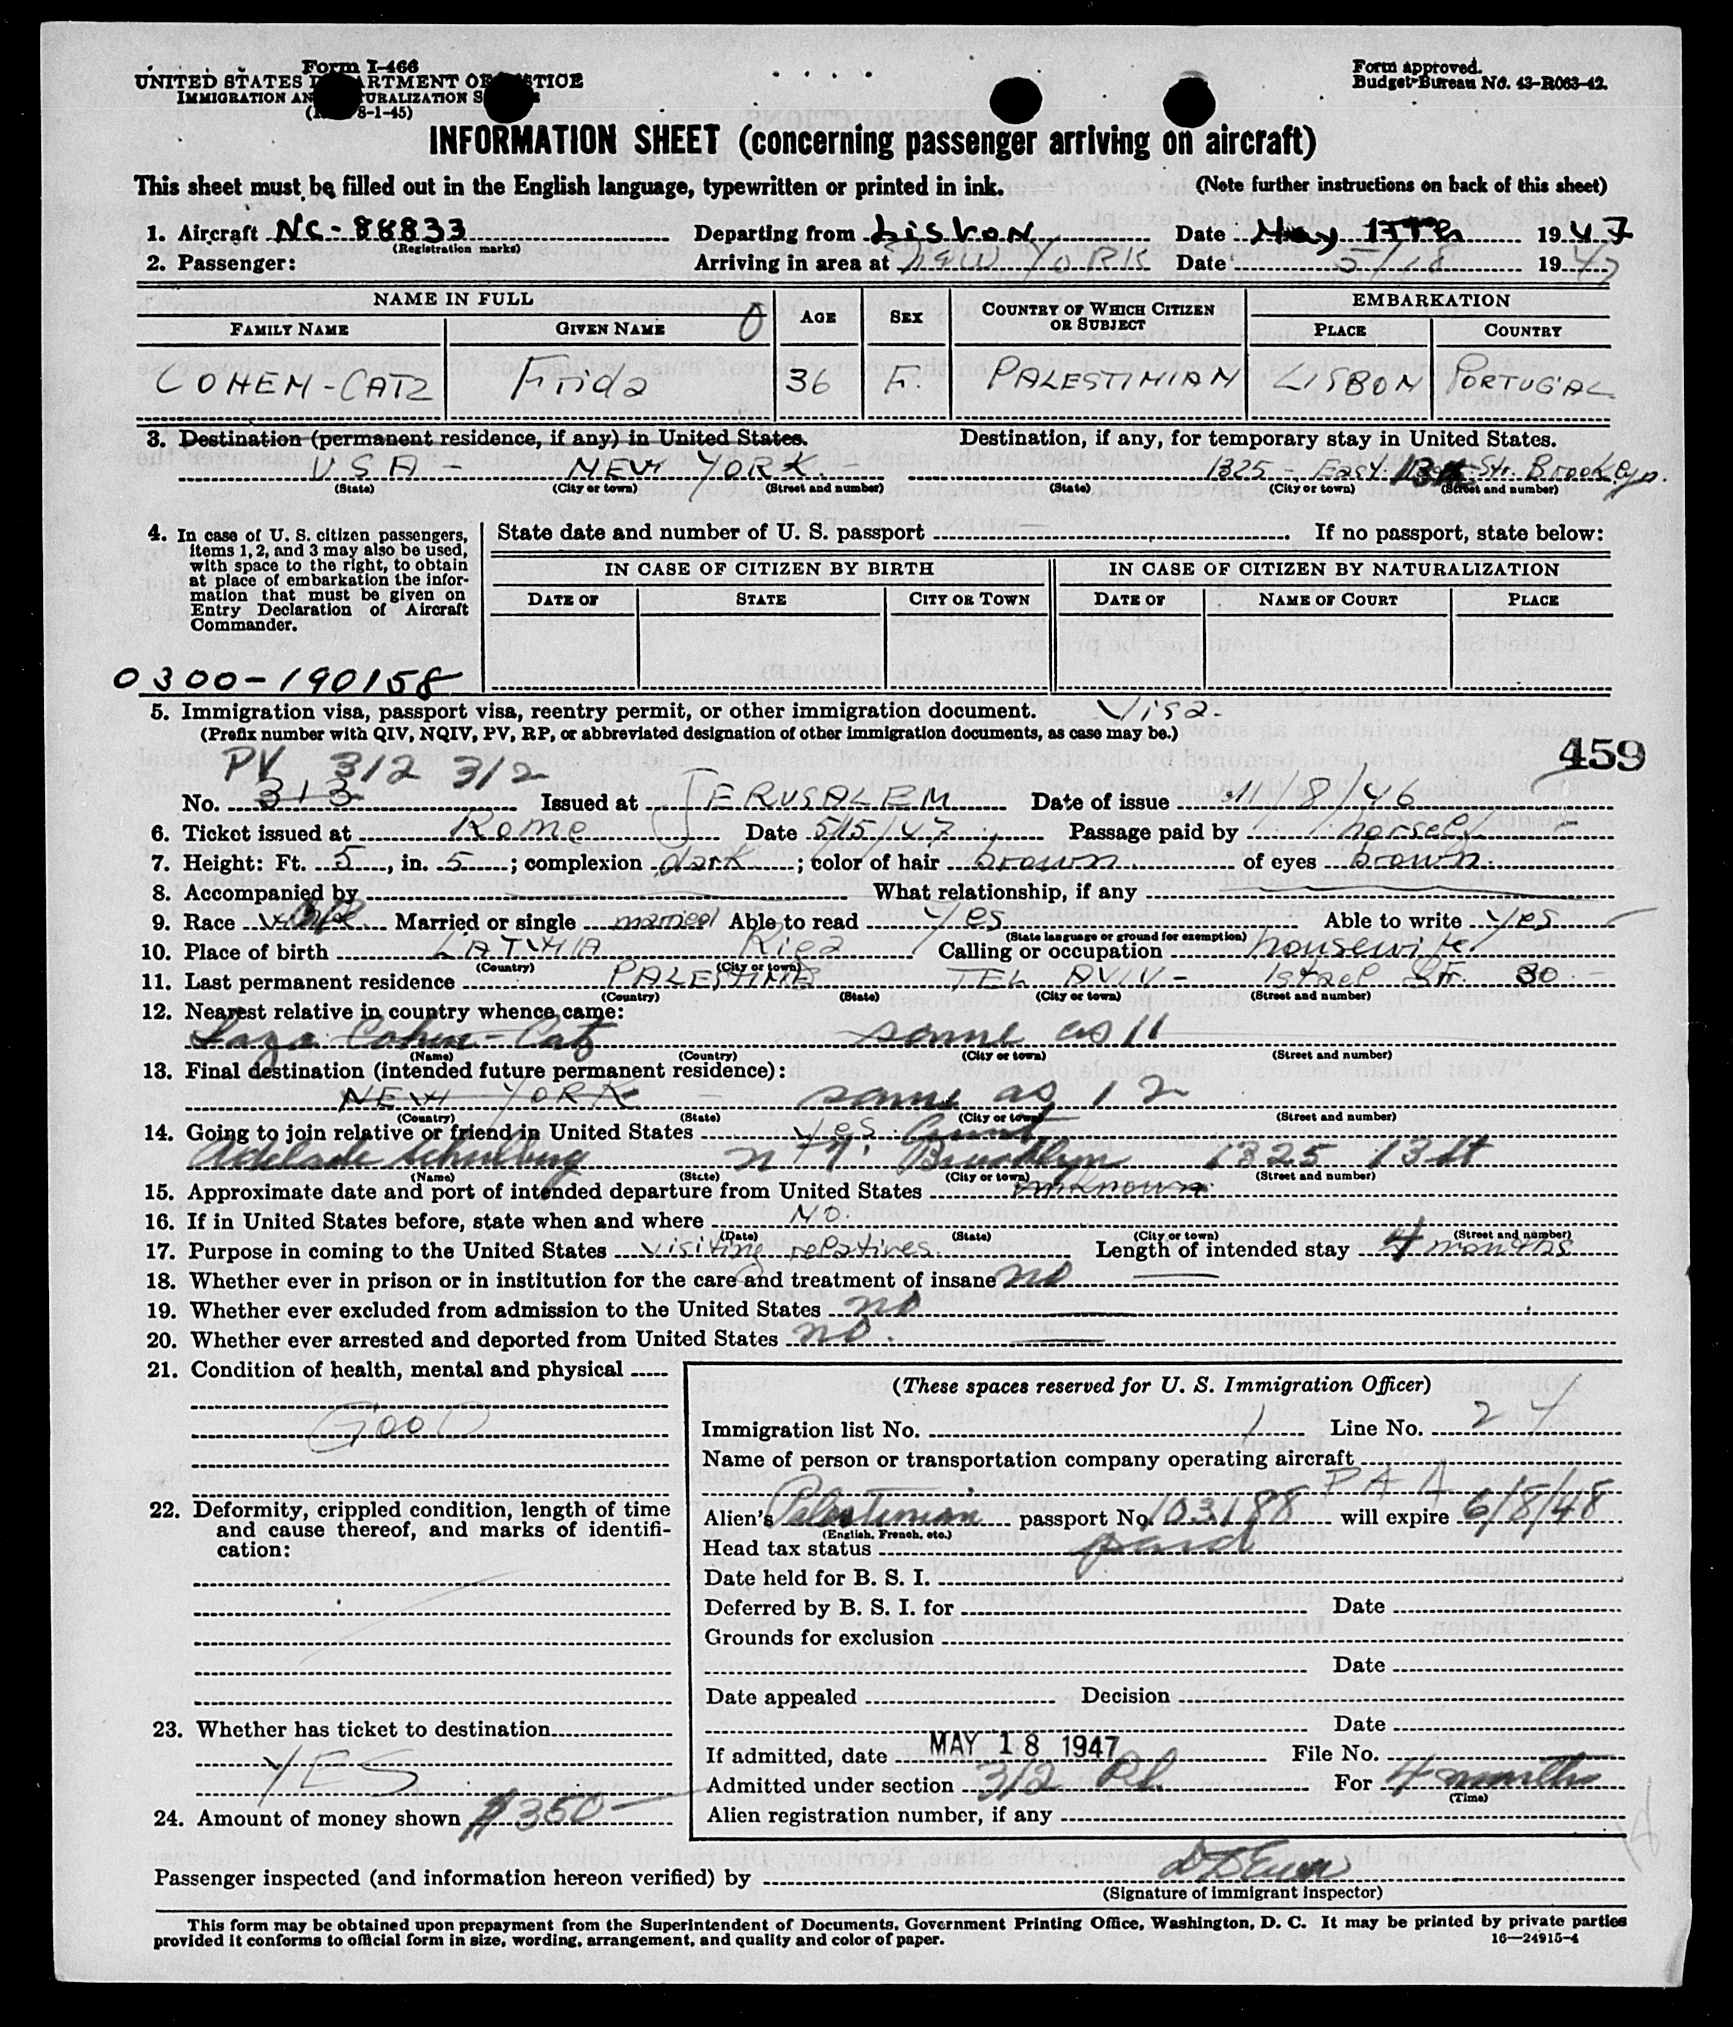 Form I-466
UNITED STATES DEPARTMENT OF JUSTICE
IMMIGRATION AND NATURALIZATION SERVICE
8-1-45)
Form approved.
Budget Bureau No. 43-R063-42.
INFORMATION SHEET (concerning passenger arriving on aircraft)
This sheet must be filled out in the English language, typewritten or printed in ink. (Note further instructions on back of this sheet)
1. Aircraft NC-88833 Departing from Lisbon Date May 17th 1947
(Registration marks)
2. Passenger: Arriving in area at NEW YORK Date 5/18 1947
NAME IN FULL AGE SEX COUNTRY OF WHICH CITIZEN OR SUBJECT EMBARKATION
FAMILY NAME GIVEN NAME 0 PLACE COUNTRY
COHEN-CATZ Frida 36 F. PALESTINIAN LISBON PORTUGAL
3. Destination (permanent residence, if any) in United States. Destination, if any, for temporary stay in United States.
USA - NEW YORK. - 1325 - East 13th Str. Brooklyn.
(State) (City or town) (Street and number) (State) (City or town) (Street and number)
4. In case of U. S. citizen passengers, items 1, 2, and 3 may also be used, with space to the right, to obtain at place of embarkation the information that must be given on Entry Declaration of Aircraft Commander.
State date and number of U. S. passport If no passport, state below:
IN CASE OF CITIZEN BY BIRTH IN CASE OF CITIZEN BY NATURALIZATION
DATE OF STATE CITY OR TOWN DATE OF NAME OF COURT PLACE
0300-190158
5. Immigration visa, passport visa, reentry permit, or other immigration document. Visa.
(Prefix number with QIV, NQIV, PV, RP, or abbreviated designation of other immigration documents, as case may be.)
459
PV 312 312
No. 313 Issued at JERUSALEM Date of issue 11/8/46
6. Ticket issued at Rome Date 5/5/47 Passage paid by
7. Height: Ft. 5, in. 5; complexion dark; color of hair brown of eyes brown.
8. Accompanied by What relationship, if any
9. Race white Married or single married Able to read Yes Able to write Yes
(State language or ground for exemption)
10. Place of birth LATVIA Riga Calling or occupation housewife.
(Country) (City or town)
11. Last permanent residence PALESTINE TEL AVIV - Israel Str. 30. -
(Country) (State) (City or town) (Street and number)
12. Nearest relative in country whence came:
Cohen-Catz same as 11
(Name) (Country) (City or town) (Street and number)
13. Final destination (intended future permanent residence):
NEW YORK same as 12
(Country) (State) (City or town) (Street and number)
14. Going to join relative or friend in United States Yes. Aunt
Adelaide Schulberg N.Y. Brooklyn 1325 13 St
(Name) (State) (City or town) (Street and number)
15. Approximate date and port of intended departure from United States unknown.
16. If in United States before, state when and where NO.
(Date) (State) (City or town) (Street and number)
17. Purpose in coming to the United States visiting relatives. Length of intended stay 4 months
18. Whether ever in prison or in institution for the care and treatment of insane no
19. Whether ever excluded from admission to the United States no
20. Whether ever arrested and deported from United States no.
21. Condition of health, mental and physical
GOOD
22. Deformity, crippled condition, length of time and cause thereof, and marks of identification:
23. Whether has ticket to destination
YES
24. Amount of money shown $350-
(These spaces reserved for U. S. Immigration Officer)
Immigration list No. 1 Line No. 24
Name of person or transportation company operating aircraft
PAA
Alien's Palestinian passport No. 103188 will expire 6/8/48
(English, French, etc.)
Head tax status paid
Date held for B. S. I.
Deferred by B. S. I. for Date
Grounds for exclusion
Date
Date appealed Decision
Date
If admitted, date MAY 18 1947 File No.
Admitted under section 3/2 For 4 months
(Time)
Alien registration number, if any
Passenger inspected (and information hereon verified) by
(Signature of immigrant inspector)
This form may be obtained upon prepayment from the Superintendent of Documents, Government Printing Office, Washington, D. C. It may be printed by private parties
provided it conforms to official form in size, wording, arrangement, and quality and color of paper. 16—24915-4